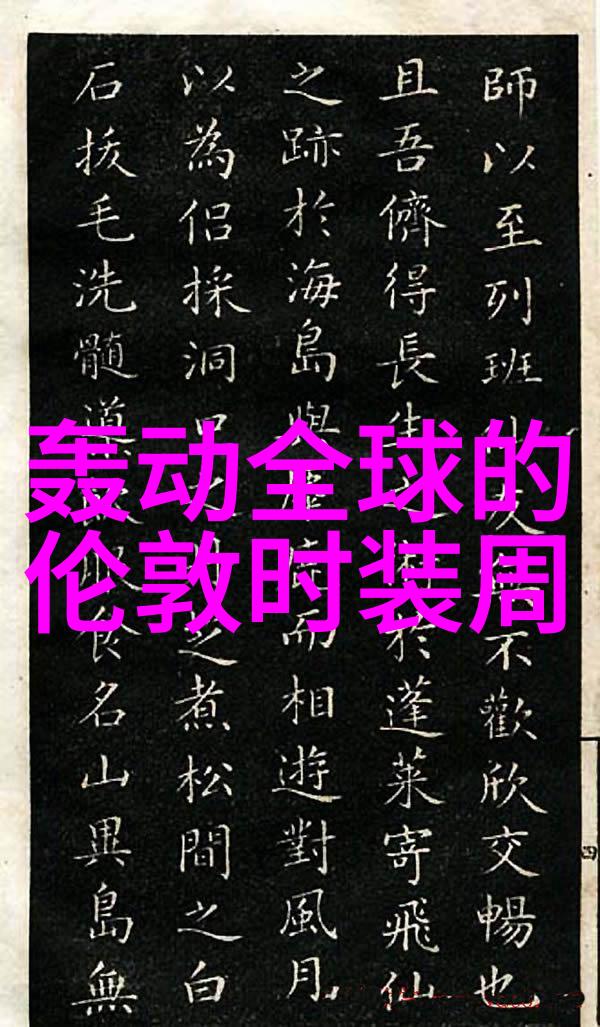 轰动全球的
伦敦时装周
師以至列班不歡欣交暢也
且吾儕得長生於蓬萊寄飛仙
之跡於海島與而相遊對風月
以為侶採洞之煮松間之白
石拔毛洗髓食名山異島無
四